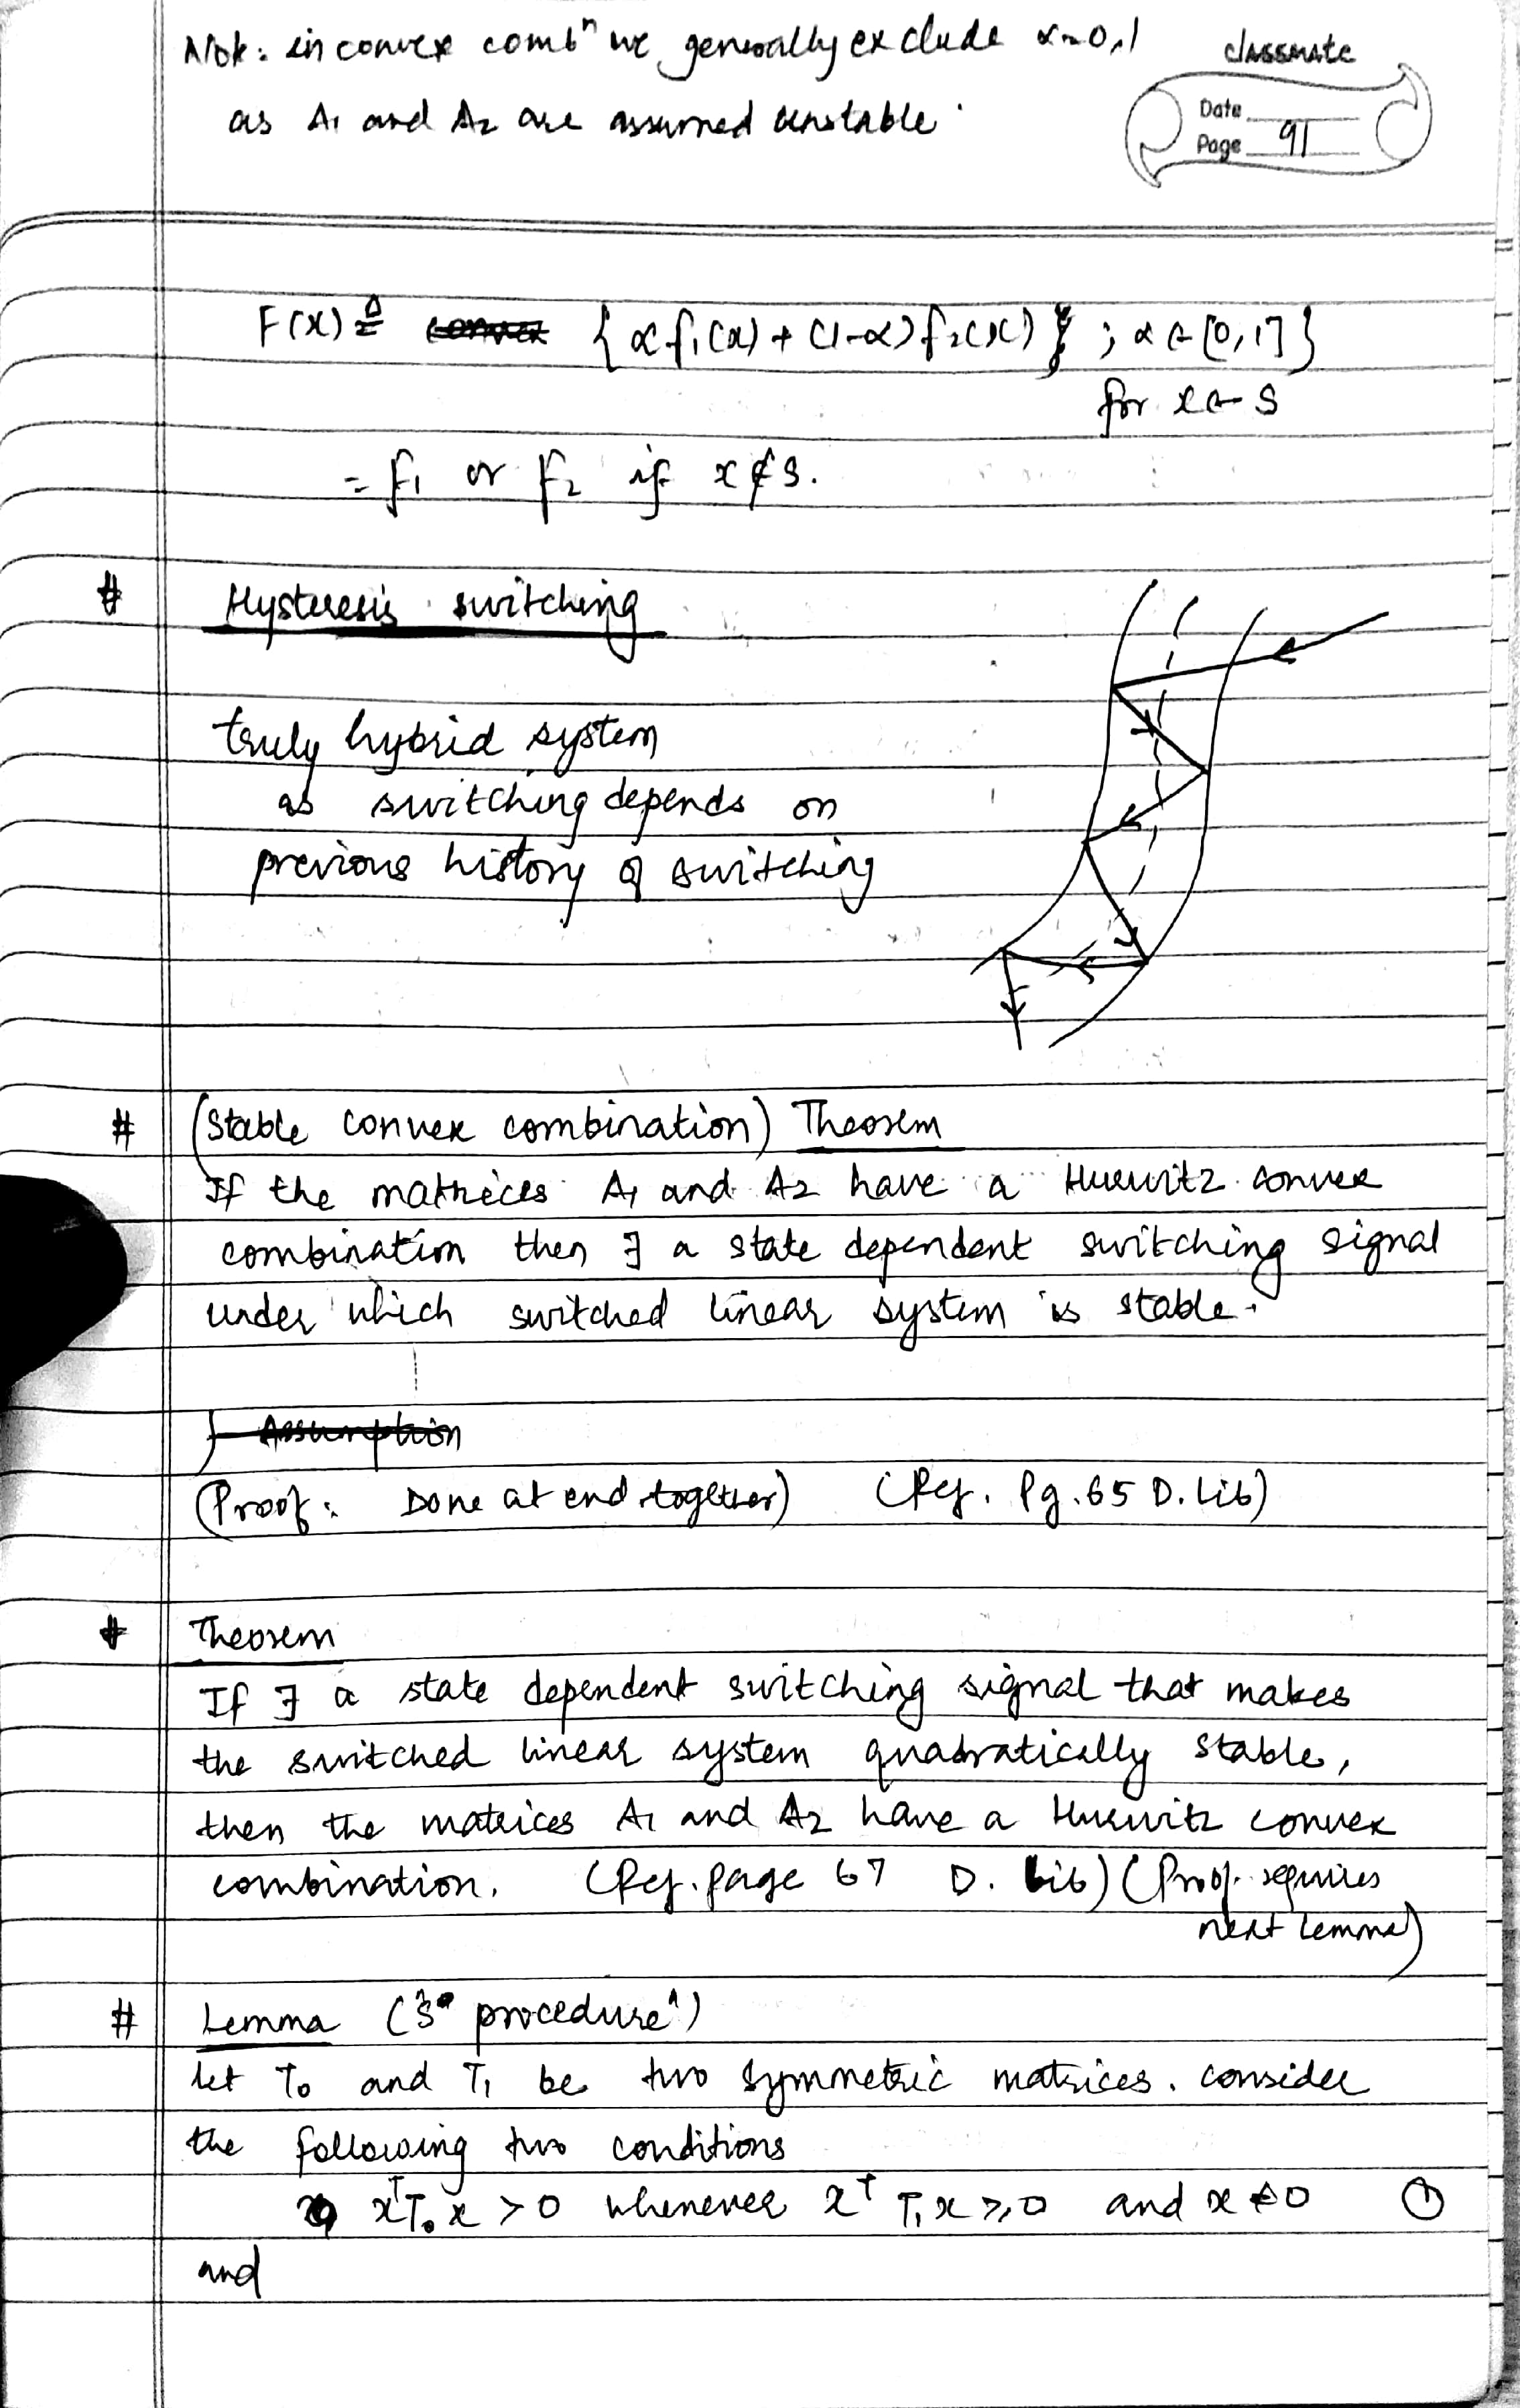 Note: in convex combⁿ we generally exclude α=0,1
as A₁ and A₂ are assumed unstable.
classmate
Date
Page 91
F(x) ≜ ~~convex~~ { α f₁(x) + (1-α) f₂(x) } ; α ∈ [0,1] }
for x ∈ S
= f₁ or f₂ if x ∉ S.
# Hysteresis switching
truly hybrid system
as switching depends on
previous history of switching
# (Stable convex combination) Theorem
If the matrices A₁ and A₂ have a Hurwitz convex
combination then ∃ a state dependent switching signal
under which switched linear system is stable.
~~Assumption~~
(Proof: Done at end together) (Ref. Pg. 65 D. Lib)
# Theorem
If ∃ a state dependent switching signal that makes
the switched linear system quadratically stable,
then the matrices A₁ and A₂ have a Hurwitz convex
combination. (Ref. page 67 D. Lib) (Proof requires
next lemma)
# Lemma ('S' procedure')
let T₀ and T₁ be two symmetric matrices. consider
the following two conditions
xᵀT₀x > 0 whenever xᵀT₁x ≥ 0 and x ≠ 0 ①
and